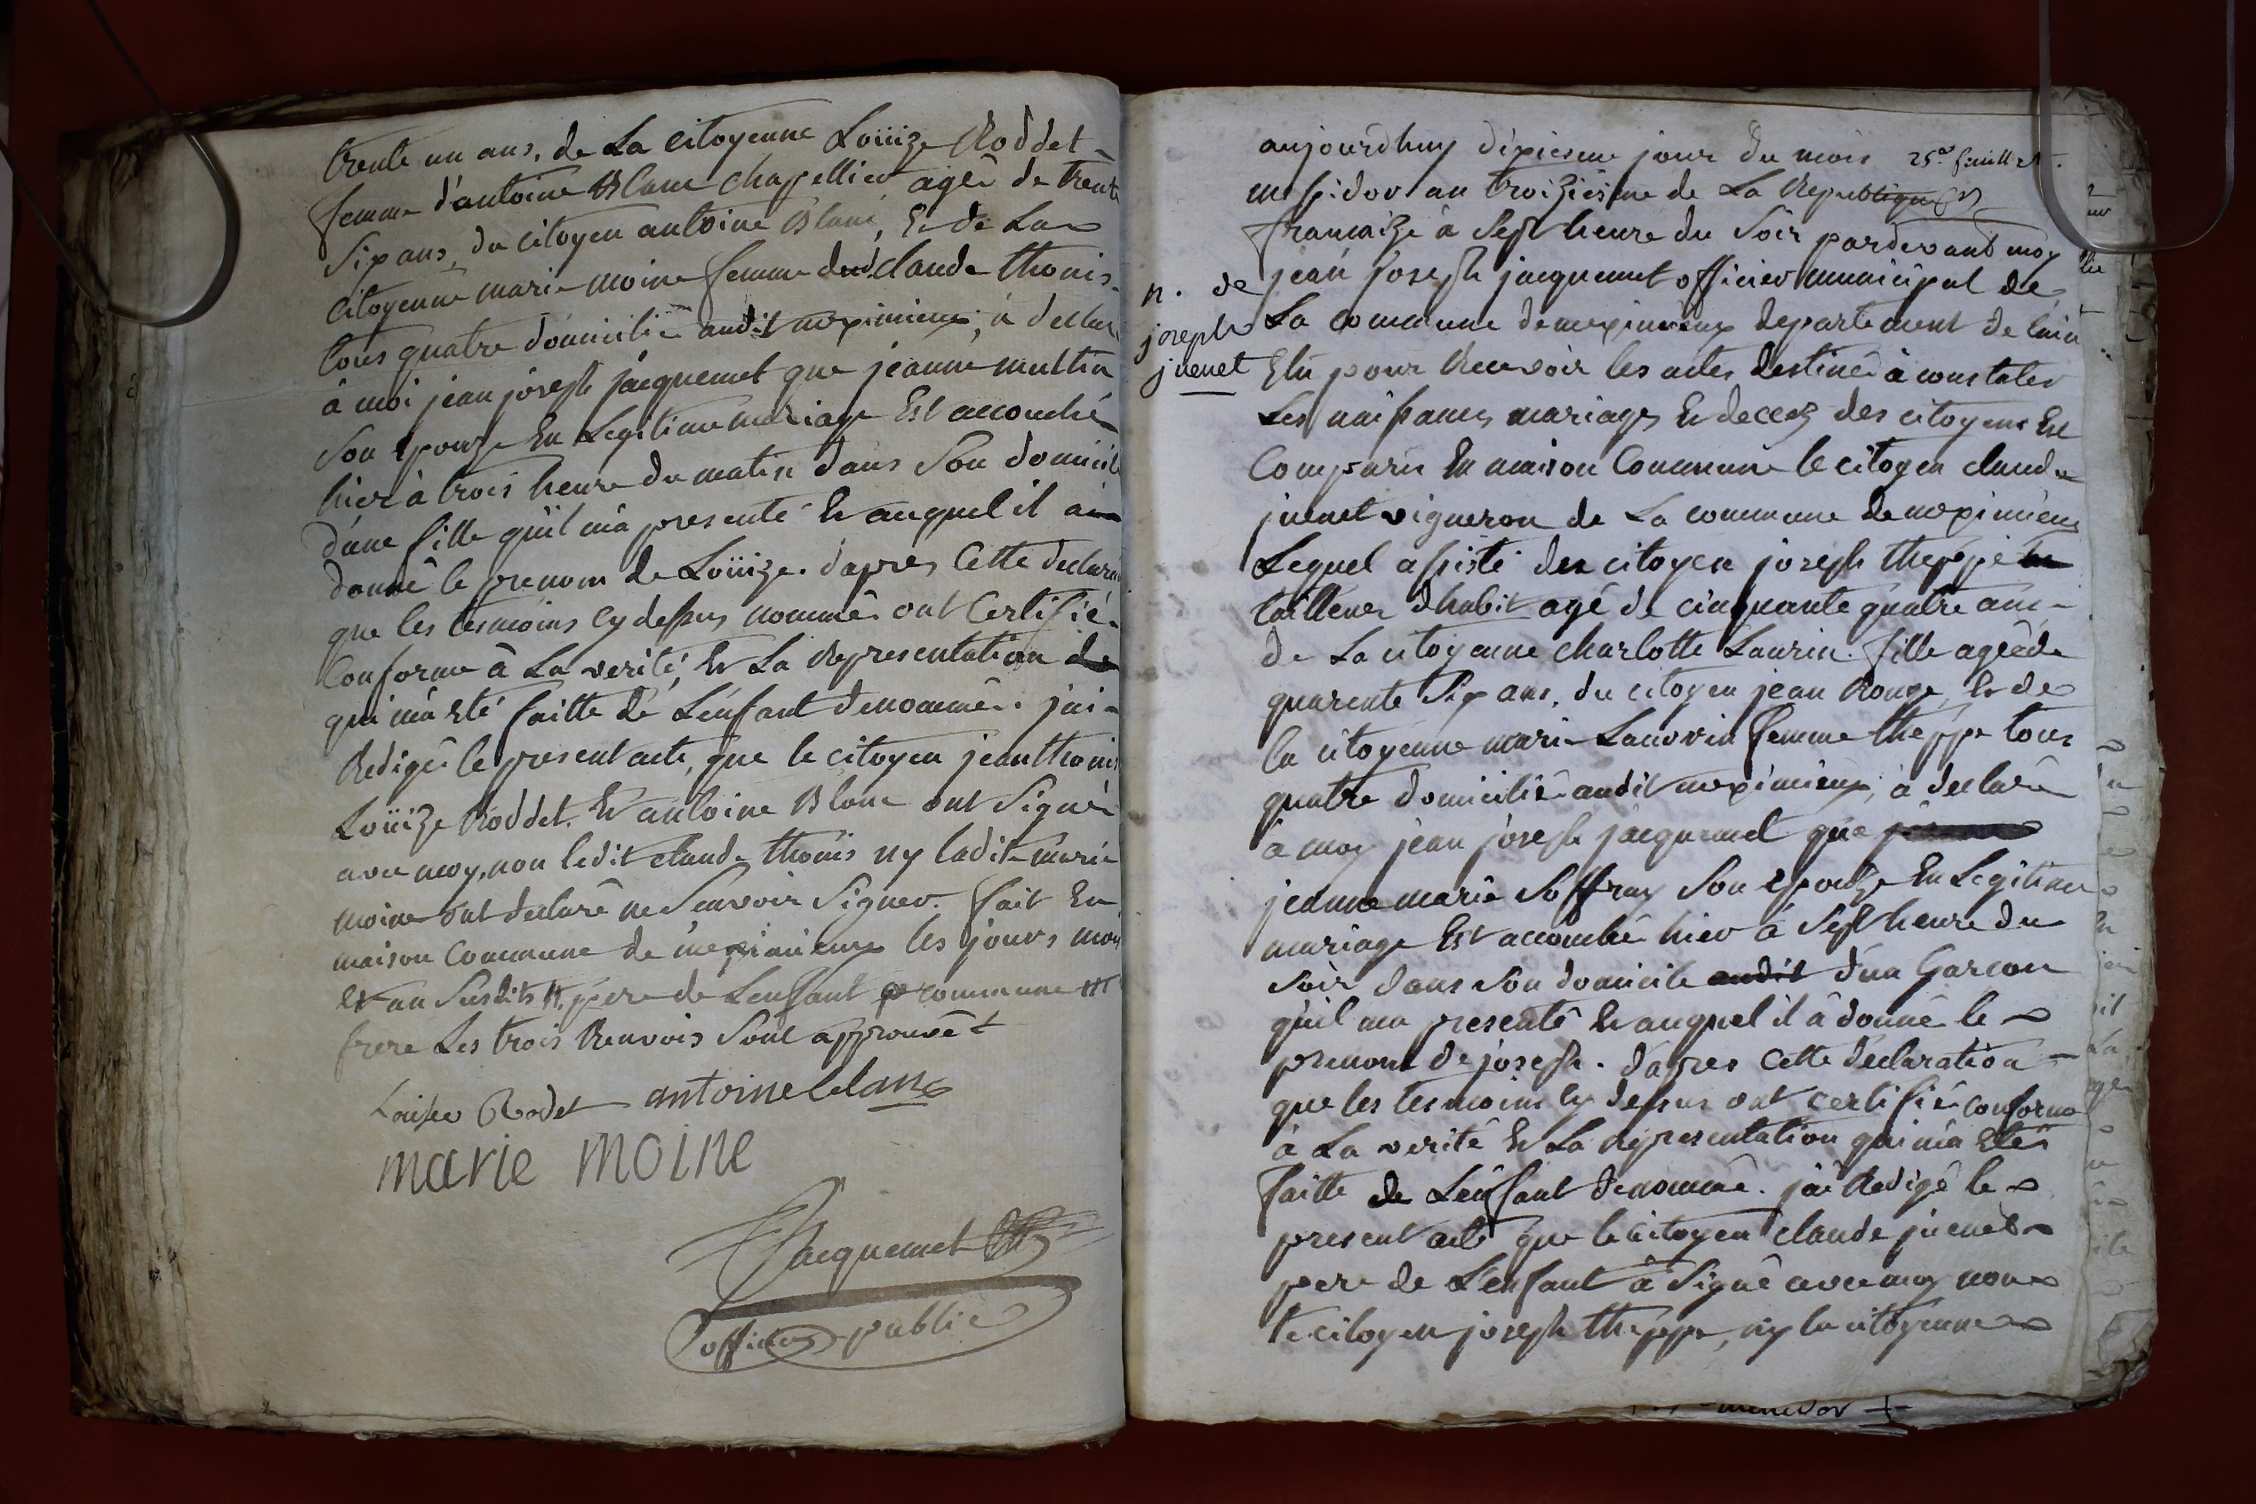 trente un ans, de La citoyenne Loüize Roddet
femme d'antoine Blanc chapellier agê de trente
Six ans, du citoyen antoine Blanc, Et de La
citoyenne marie moine femme dud claude thonis
tous quatre domicilié audit meximieux, a declaré
à moi jean joseph jacquemet que jeanne
Son Epouze En Legitime mariage Est accouché
hier à trois heure du matin dans Son domicile
d'une fille qu'il m'a presenté Et auquel il a
donné le prenom de Loüize. d'apres Cette declaration
que les tesmoins cy dessus nommés ont Certifié
Conforme à La verité, Et La Representation de
qui m'a Eté faitte de L'enfant denommé. j'ai
Redigé le present acte, que le citoyen jean thonis
Loüize Roddet. Et antoine Blanc ont Signé
avec moy, non ledit claude thonis ny ladite marie
moine ont declaré ne Scavoir Signer. fait En
maison Commune de meximieux les jours mois
et an Susdits #. pere de L'enfant commune ##
frere Les trois Renvois Sont approuvé
Louise Rodet antoine blanc
marie moine
Jacquemet
officier public
aujourdhuy dixiesme jour du mois 25e feuillet.
messidor an troiziesme de La Republique
francaize à Sept heure du Soir pardevant moy
n. de jean joseph jacquemet officier municipal de
joseph La commune de meximieux departement de lain
juenet Elu pour Recevoir les actes destiné à constater
Les naissances mariages Et decces des citoyens Est
Comparu En maison Commune le citoyen claude
juenet vigneron de La commune de meximieux
Lequel assisté des citoyen joseph theppe
tailleur dhabit agé de cinquante quatre ans
de La citoyenne charlotte Laurin fille ageé de
quarente Six ans, du citoyen jean Rouge, Et de
la citoyenne marie femme theppe tous
quatre domicilié audit meximieux, a declaré
à moy jean joseph jacquemet que
jeanne marie Soffray Son Epouze En Legitime
mariage Est accouché hier à Sept heure du
Soir dans Son domicile audit d'un Garcon
qu'il ma presenté Et auquel il à donné le
prenom de joseph. d'apres Cette declaration
que les tesmoins cy dessus ont certifié conforme
à La verité Et La Representation qui m'a Eté
faitte de L'enfant denommé. j'ai Redigé le
present acte que le citoyen claude juenet
pere de L'enfant à Signé avec moy non
le citoyen joseph theppe, ny la citoyenne